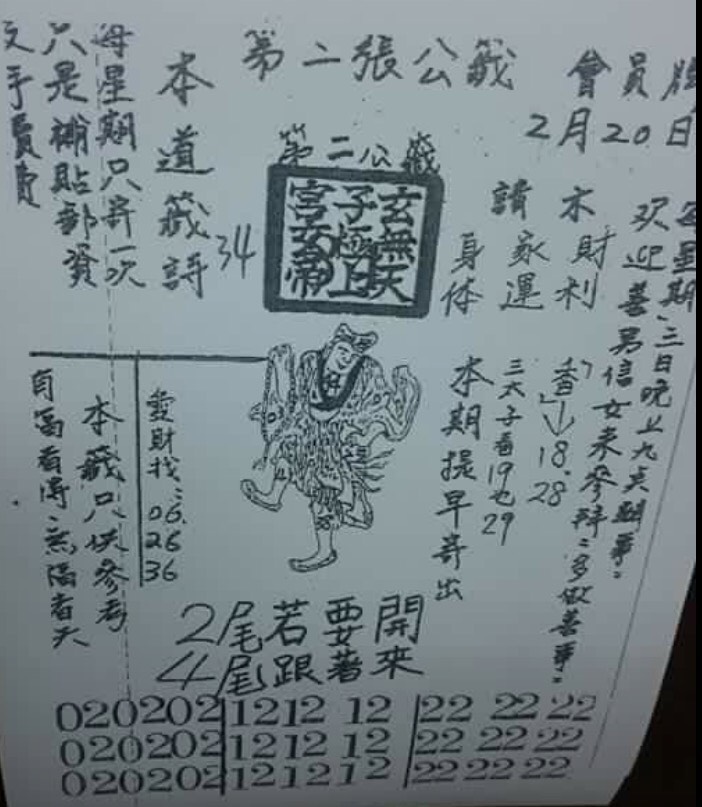 第二張公籤
會員
2月20日
第二公籤
玄無天
子極上
宮玄帝
34
本道籤詩
每星期只寄一次
只是補貼郵資
手費
木財利
請家運
身体
每星期三日晚上九点
欢迎善男信女来參拜
多做善事
香 18.28
三太子看19也29
本期提早寄出
發財找: 06. 26 36
本籤只供參考
有福看得:無福看天
2尾若要開
4尾跟著來
020202 12 12 12 22 22 22
020202 12 12 12 22 22 22
020202 12 12 12 22 22 22